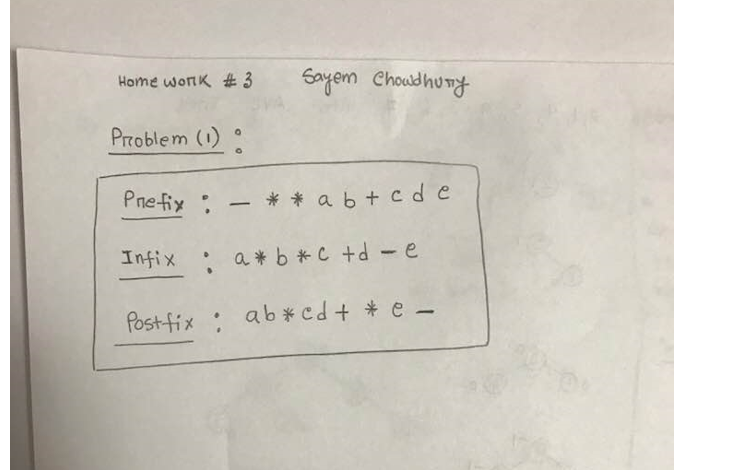 Homework # 3 Sayem Chowdhury
Problem (1) :
Prefix : - * * a b + c d e
Infix : a * b * c + d - e
Postfix : ab * cd + * e -